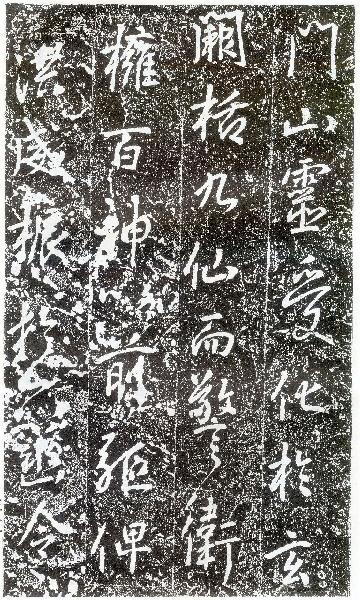 門山靈受化於玄
闕栝九仙而警衛
擁百神以前駈俾
洪威振於令